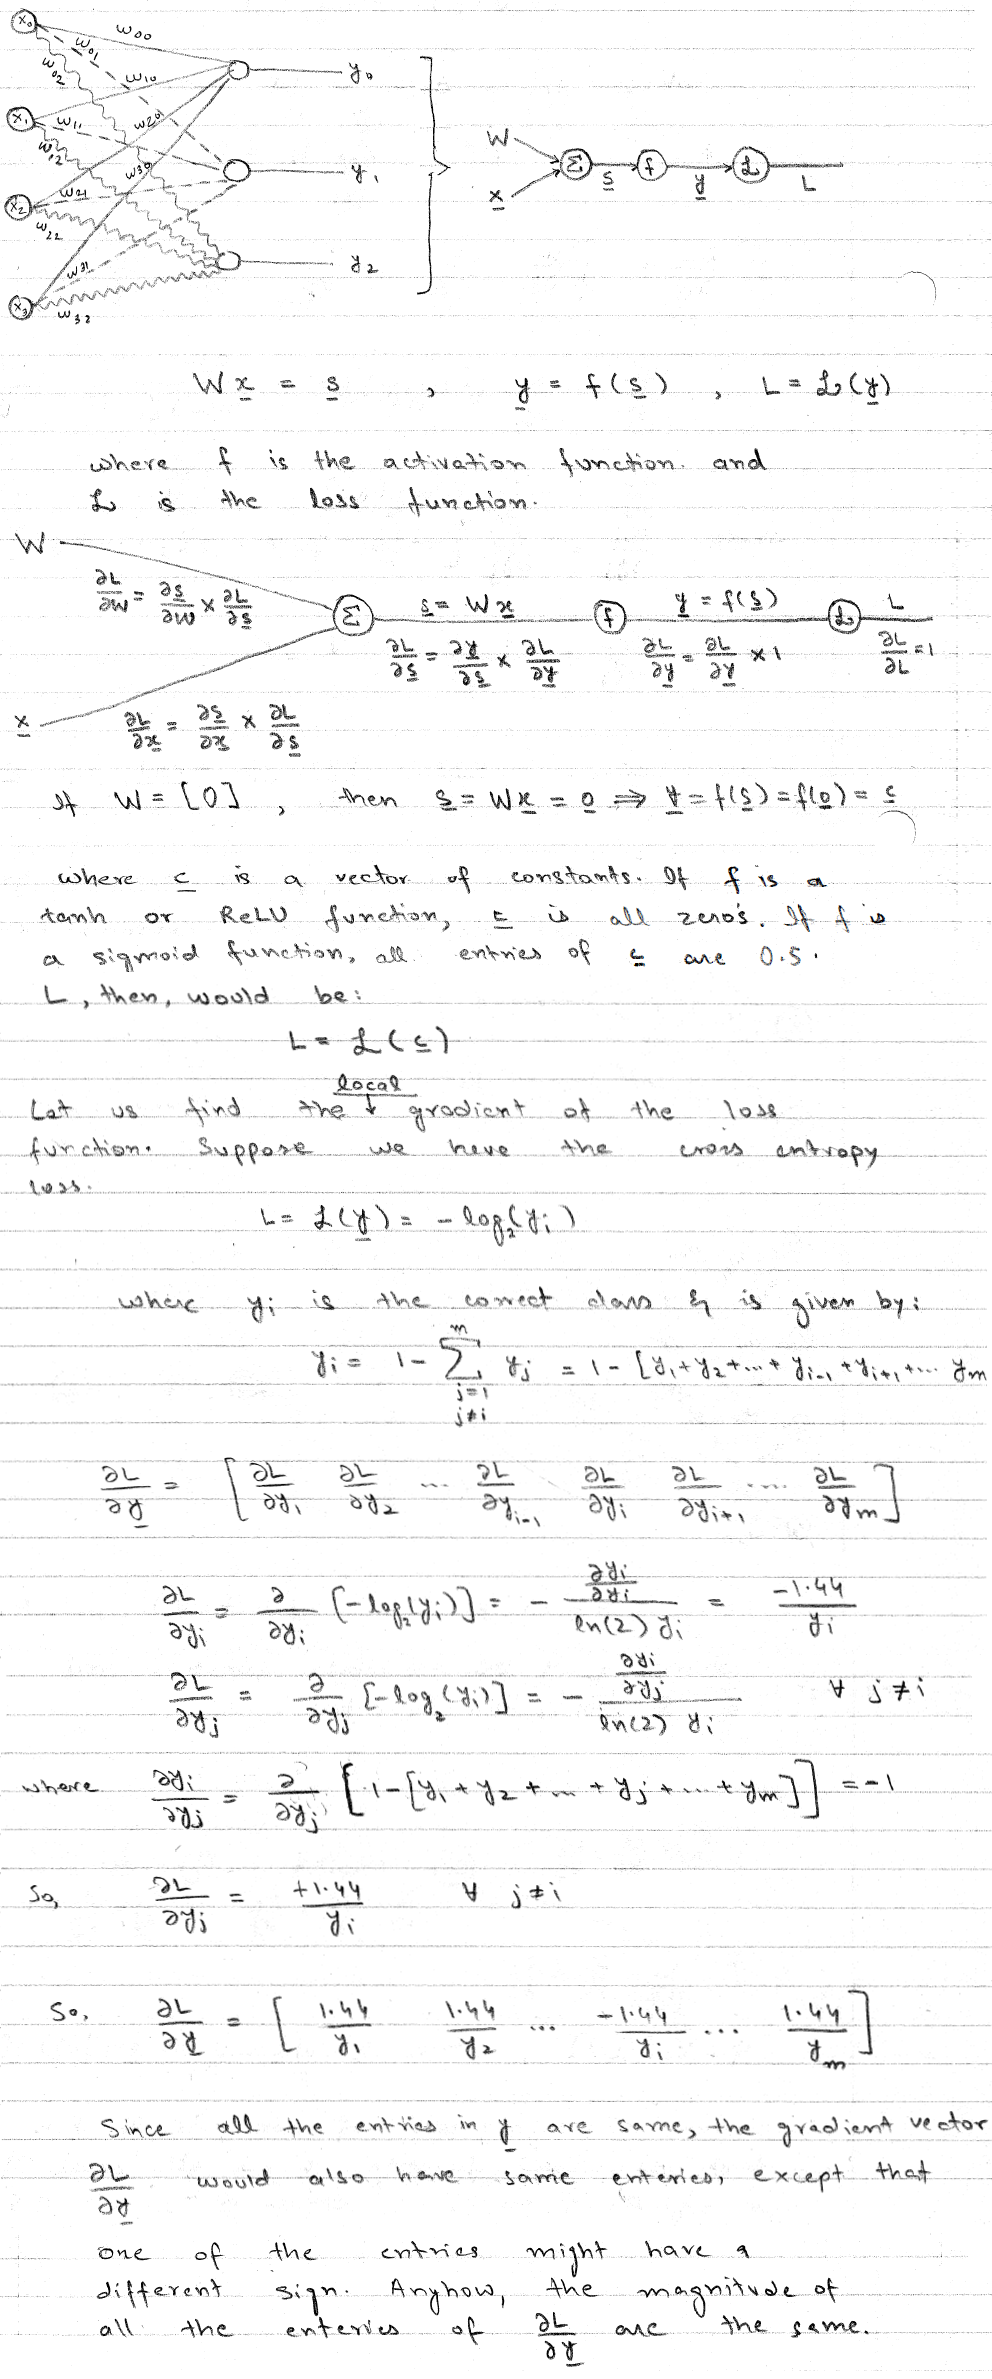 x₀ w₀₀
w₀₁
w₀₂ w₁₀ y₀
x₁ w₁₁ w₂₀
w₁₂ w₃₀ y₁
x₂ w₂₁
w₂₂
w₃₁ y₂
x₃ w₃₂
W
x Σ s f y ℒ L
Wx = s , y = f(s) , L = ℒ(y)
where f is the activation function. and
ℒ is the loss function.
W
∂L/∂W = ∂s/∂W × ∂L/∂s
Σ s = Wx f y = f(s) ℒ L
∂L/∂s = ∂y/∂s × ∂L/∂y ∂L/∂y = ∂L/∂y × 1 ∂L/∂L = 1
x ∂L/∂x = ∂s/∂x × ∂L/∂s
If W = [0] , then s = Wx = 0 ⇒ y = f(s) = f(0) = c
where c is a vector of constants. If f is a
tanh or ReLU function, c is all zero's. If f is
a sigmoid function, all entries of c are 0.5.
L, then, would be:
L = ℒ(c)
local
Let us find the ↓ gradient of the loss
function. Suppose we have the cross entropy
loss.
L = ℒ(y) = - log₂(yᵢ)
where yᵢ is the correct class & is given by:
yᵢ = 1 - Σ_{j=1, j≠i}^{m} yⱼ = 1 - [y₁ + y₂ + ... + yᵢ₋₁ + yᵢ₊₁ + ... yₘ
∂L/∂y = [ ∂L/∂y₁ ∂L/∂y₂ ... ∂L/∂yᵢ₋₁ ∂L/∂yᵢ ∂L/∂yᵢ₊₁ ... ∂L/∂yₘ ]
∂L/∂yᵢ = ∂/∂yᵢ [-log₂(yᵢ)] = - (∂yᵢ/∂yᵢ)/(ln(2) yᵢ) = -1.44/yᵢ
∂L/∂yⱼ = ∂/∂yⱼ [-log₂(yᵢ)] = - (∂yᵢ/∂yⱼ)/(ln(2) yᵢ) ∀ j≠i
where ∂yᵢ/∂yⱼ = ∂/∂yⱼ [1 - [y₁ + y₂ + ... + yⱼ + ... + yₘ]] = -1
So, ∂L/∂yⱼ = +1.44/yᵢ ∀ j≠i
So, ∂L/∂y = [ 1.44/y₁ 1.44/y₂ ... -1.44/yᵢ ... 1.44/yₘ ]
Since all the entries in y are same, the gradient vector
∂L/∂y would also have same enteries, except that
one of the entries might have a
different sign. Anyhow, the magnitude of
all the enteries of ∂L/∂y are the same.